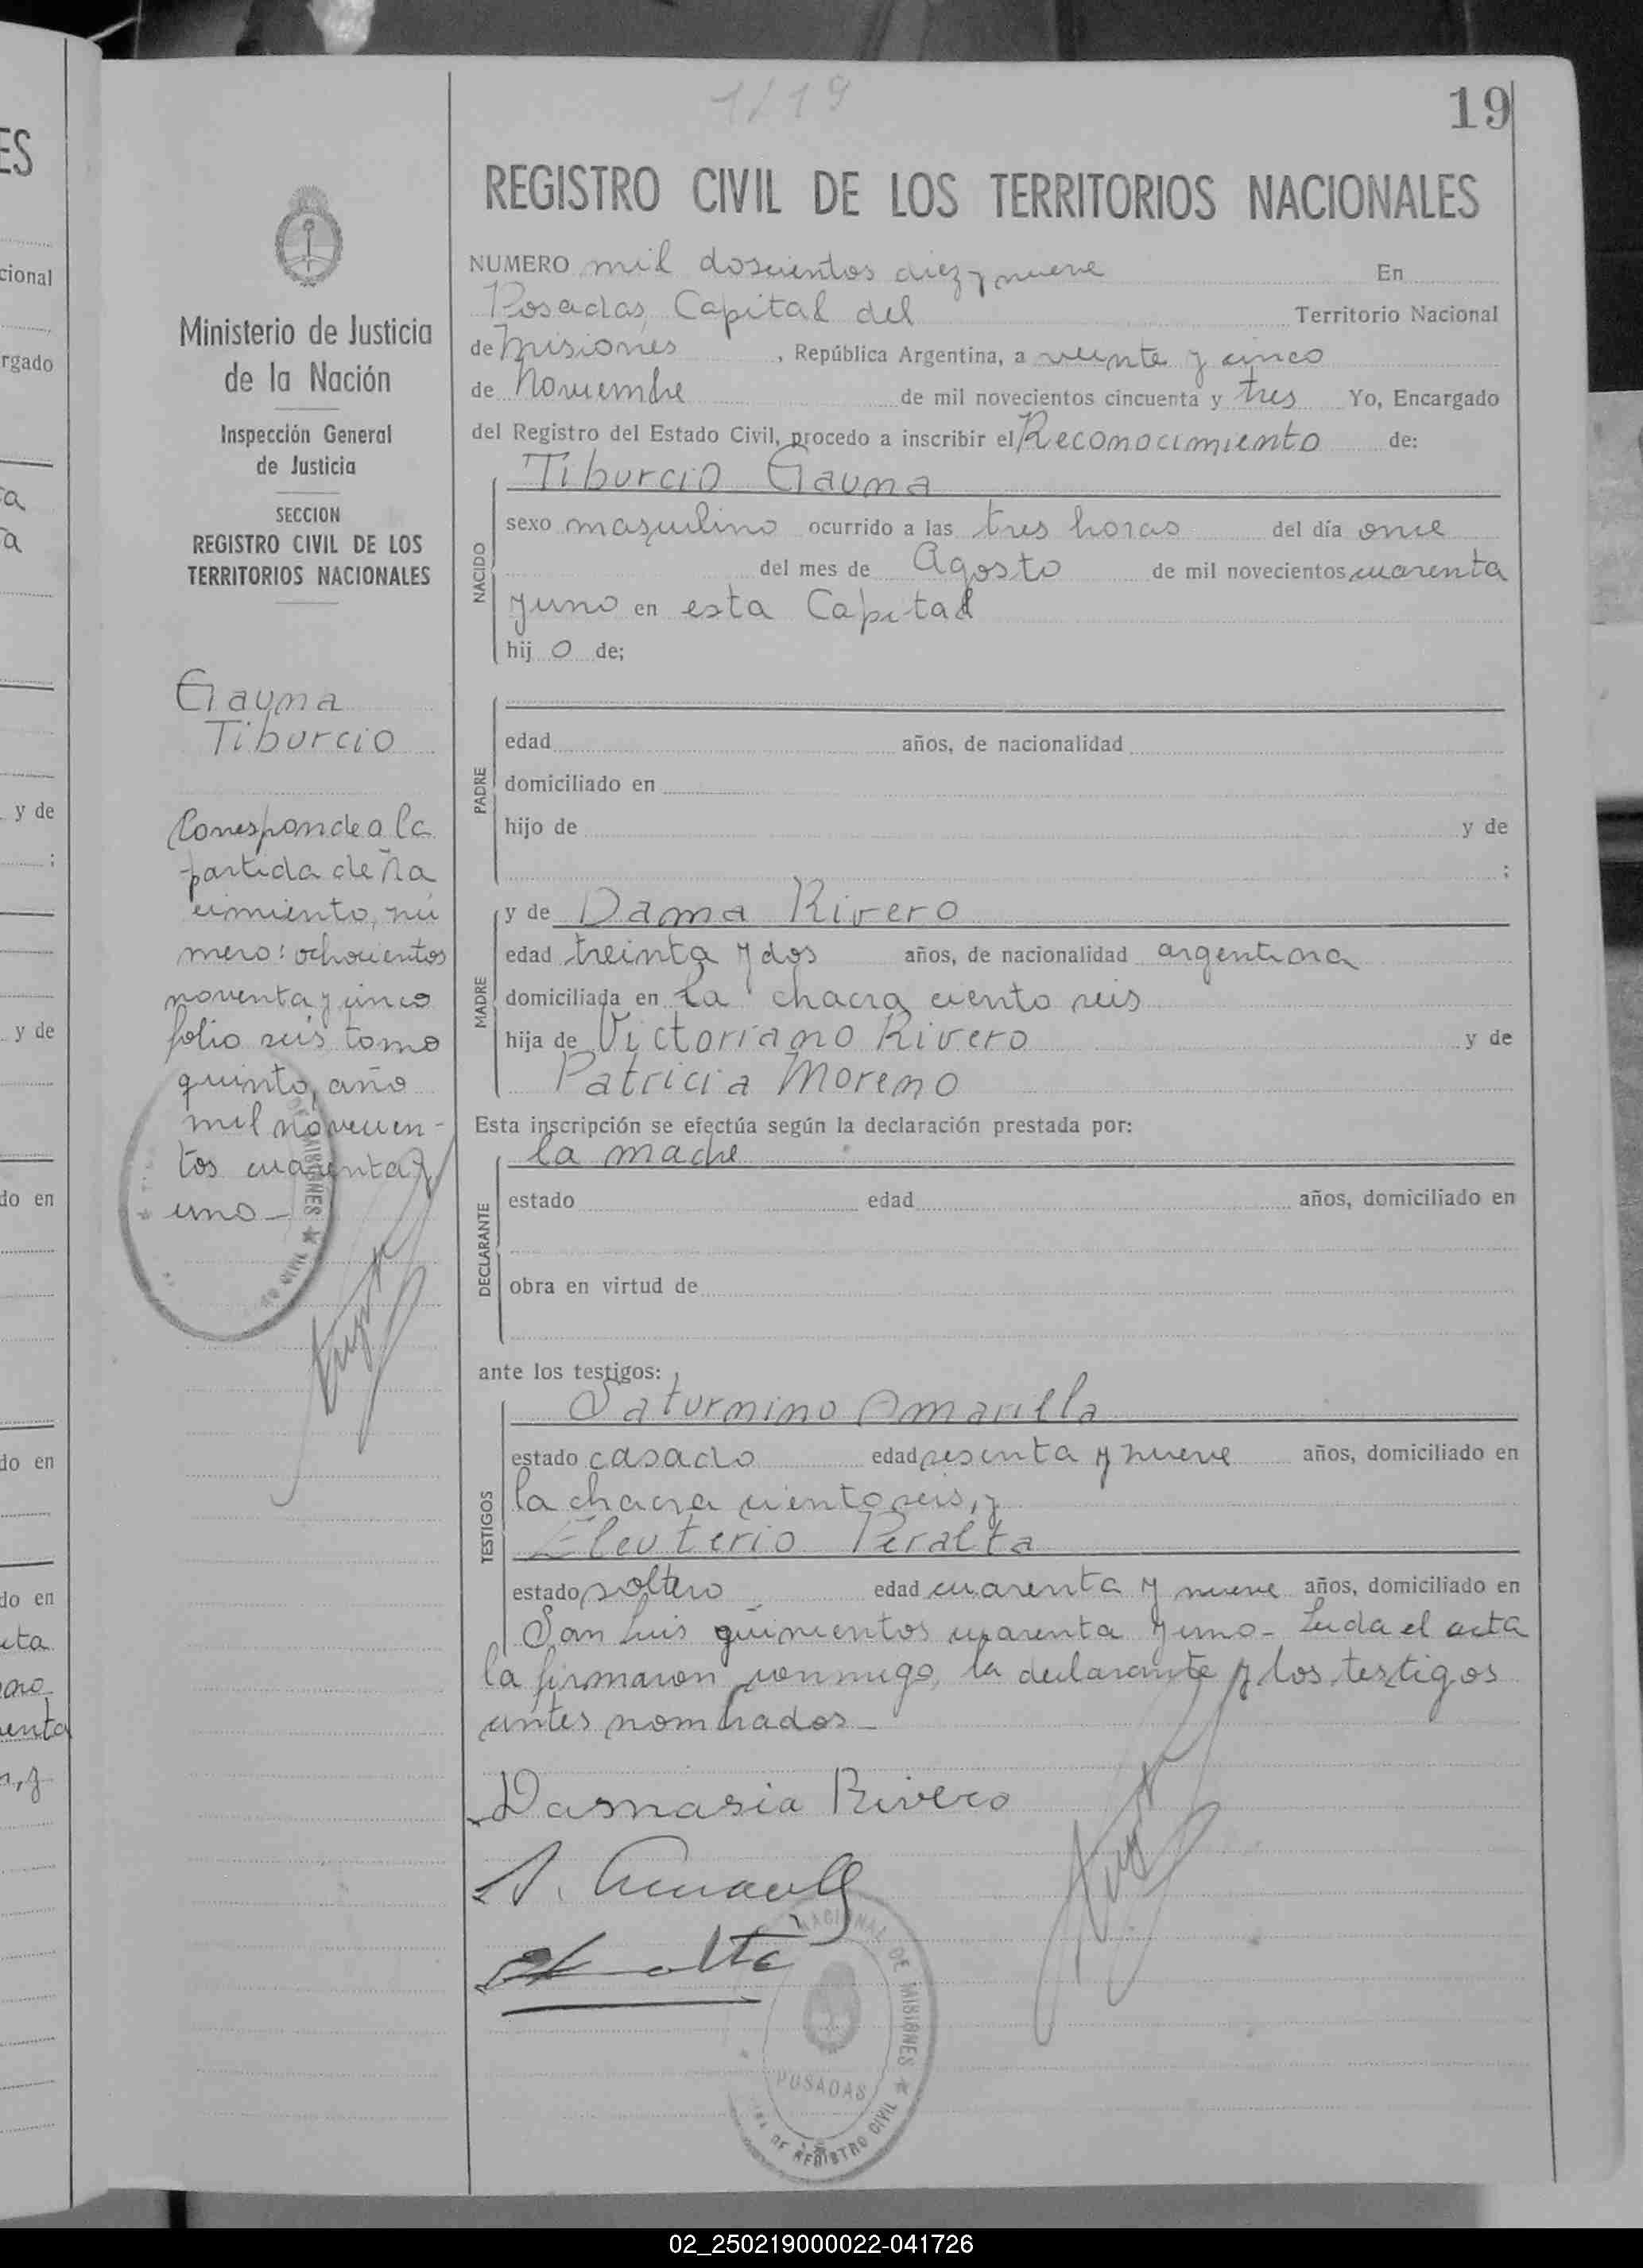 1/19
19
REGISTRO CIVIL DE LOS TERRITORIOS NACIONALES
Ministerio de Justicia
de la Nación
Inspección General
de Justicia
SECCION
REGISTRO CIVIL DE LOS
TERRITORIOS NACIONALES
Gauna
Tiburcio
Corresponde a la
partida de Na
cimiento, nú
mero: ochocientos
noventa y cinco
folio seis tomo
quinto, año
mil novecien-
tos cuarenta y
uno -
NUMERO mil doscientos diez y nueve En
Posadas, Capital del Territorio Nacional
de Misiones , República Argentina, a veinte y cinco
de Noviembre de mil novecientos cincuenta y tres Yo, Encargado
del Registro del Estado Civil, procedo a inscribir el Reconocimiento de:
NACIDO
Tiburcio Gauna
sexo masculino ocurrido a las tres horas del día once
del mes de Agosto de mil novecientos cuarenta
y uno en esta Capital
hij o de;
PADRE
edad años, de nacionalidad
domiciliado en
hijo de y de
;
MADRE
y de Dama Rivero
edad treinta y dos años, de nacionalidad argentina
domiciliada en la chacra ciento seis
hija de Victoriano Rivero y de
Patricia Moreno
Esta inscripción se efectúa según la declaración prestada por:
DECLARANTE
la madre
estado edad años, domiciliado en
obra en virtud de
ante los testigos:
TESTIGOS
Saturnino Amarilla
estado casado edad sesenta y nueve años, domiciliado en
la chacra ciento seis, y
Eleuterio Peralta
estado soltero edad cuarenta y nueve años, domiciliado en
San Luis quinientos cuarenta y uno - Leida el acta
la firmaron conmigo, la declarante y los testigos
antes nombrados -
Damasia Rivero
NACIONAL DE MISIONES
POSADAS
DE REGISTRO CIVIL
ES
cional
rgado
y de
;
y de
do en
do en
do en
02_250219000022-041726